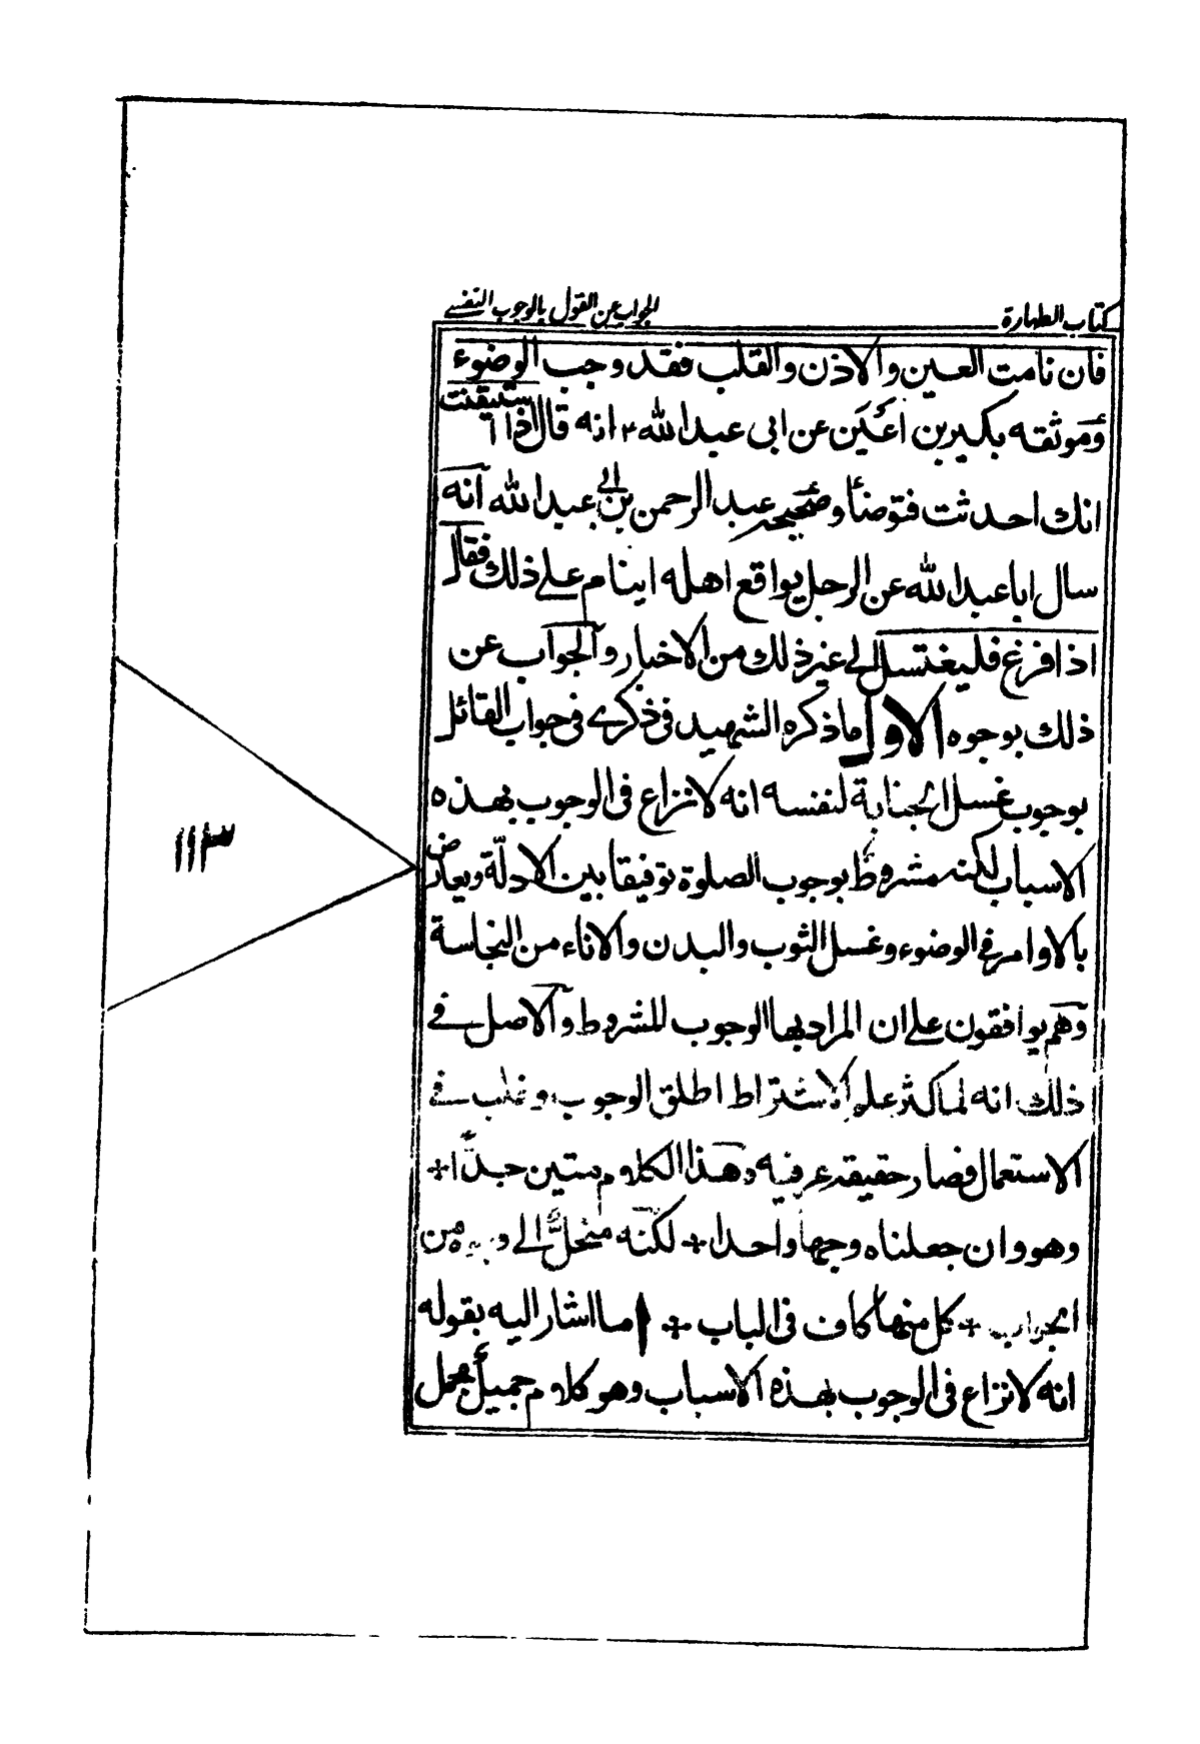 كتاب الطهارة
الجواب عن القول بالوجوب النفسے
فان نامت العين والاذن والقلب فقد وجب الوضوء
وموثقه بكير بن اعين عن ابى عبد الله ؑ انه قال اذا استيقنت
انك احدثت فتوضأ وصحيحه عبد الرحمن بن ابى عبد الله انه
سال ابا عبد الله عن الرجل يواقع اهله اينام علے ذلك فقال
اذا فرغ فليغتسل الى غير ذلك من الاخبار والجواب عن
ذلك بوجوه الاول ما ذكره الشهيد فى ذكرے فى جواب القائل
بوجوب غسل الجنابة لنفسه انه لا نزاع فى الوجوب بهذه
الاسباب لكنه مشروط بوجوب الصلوة توفيقا بين الادلّة ويعارض
بالاوامر فى الوضوء وغسل الثوب والبدن والاناء من النجاسة
وهم يوافقون علے ان المراد بها الوجوب للشروط والاصل فے
ذلك انه لما كثر علم الاشتراط اطلق الوجوب وغلب فے
الاستعمال فصار حقيقه عرفيه وهذا الكلام متين جدًّا +
وهو وان جعلناه وجها واحدا + لكنه منحلٌّ الى وجوه من
الجواب + كل منها كاف فى الباب + اما اشار اليه بقوله
انه لا نزاع فى الوجوب بهذه الاسباب وهو كلام جميل مجمل
١١٣